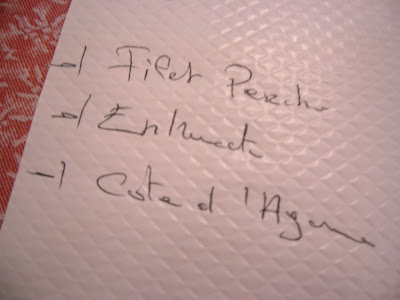 -) Filet Perche
-) Entrecote
-) Cote d'Agneau